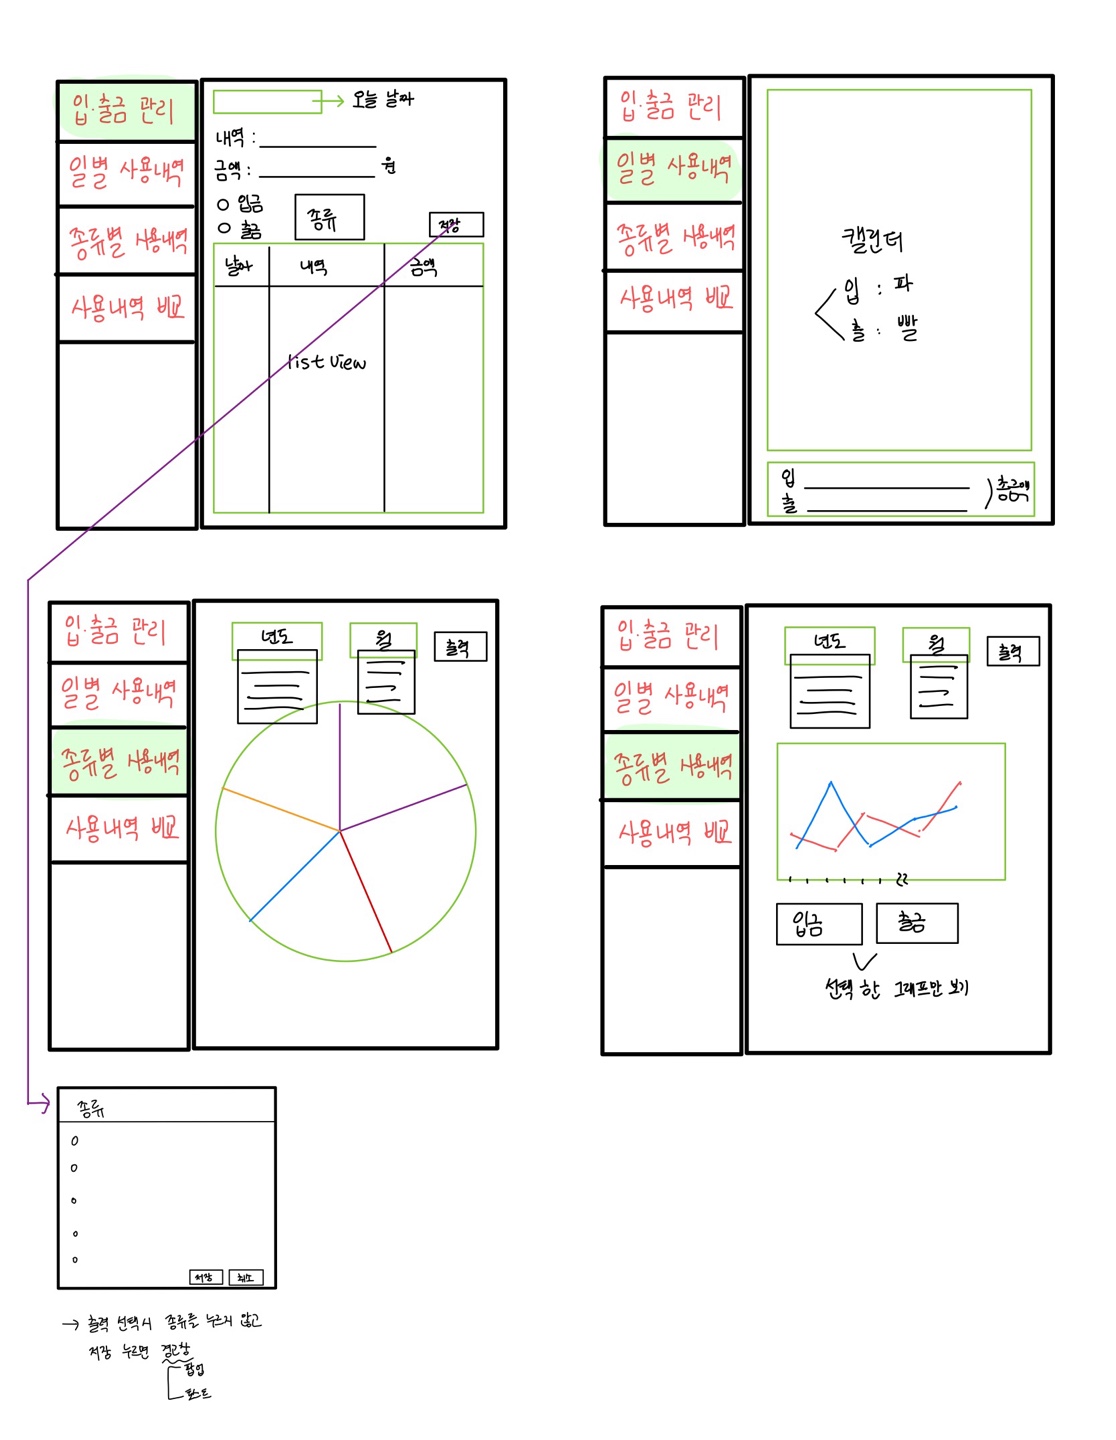 입·출금 관리
일별 사용내역
종류별 사용내역
사용내역 비교
오늘 날짜
내역 :
금액 : 원
입금
출금
종류
저장
날짜 내역 금액
list view
입·출금 관리
일별 사용내역
종류별 사용내역
사용내역 비교
캘린더
입 : 파
출 : 빨
입
출
총금액
입·출금 관리
일별 사용내역
종류별 사용내역
사용내역 비교
년도 월 출력
입·출금 관리
일별 사용내역
종류별 사용내역
사용내역 비교
년도 월 출력
입금 출금
선택 한 그래프만 보기
종류
저장 취소
→ 출력 선택시 종류를 누르지 않고
저장 누르면 경고창
팝업
토스트